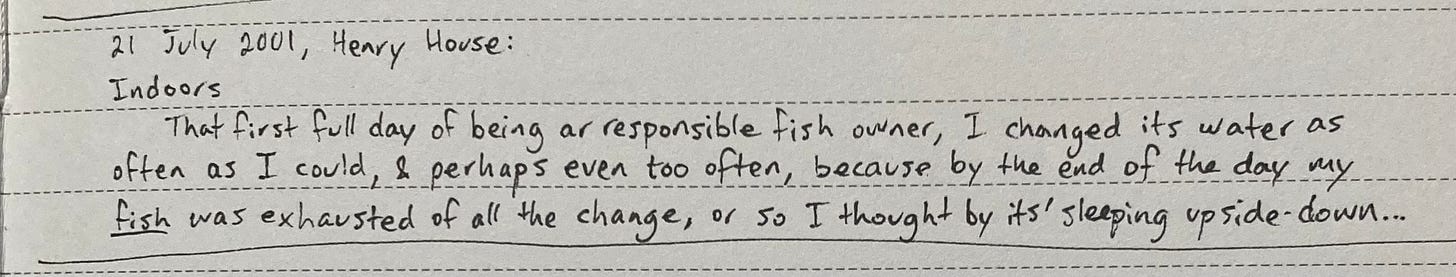 21 July 2001, Henry House:
Indoors
That first full day of being ar responsible fish owner, I changed its water as
often as I could, & perhaps even too often, because by the end of the day my
fish was exhausted of all the change, or so I thought by its' sleeping upside-down...